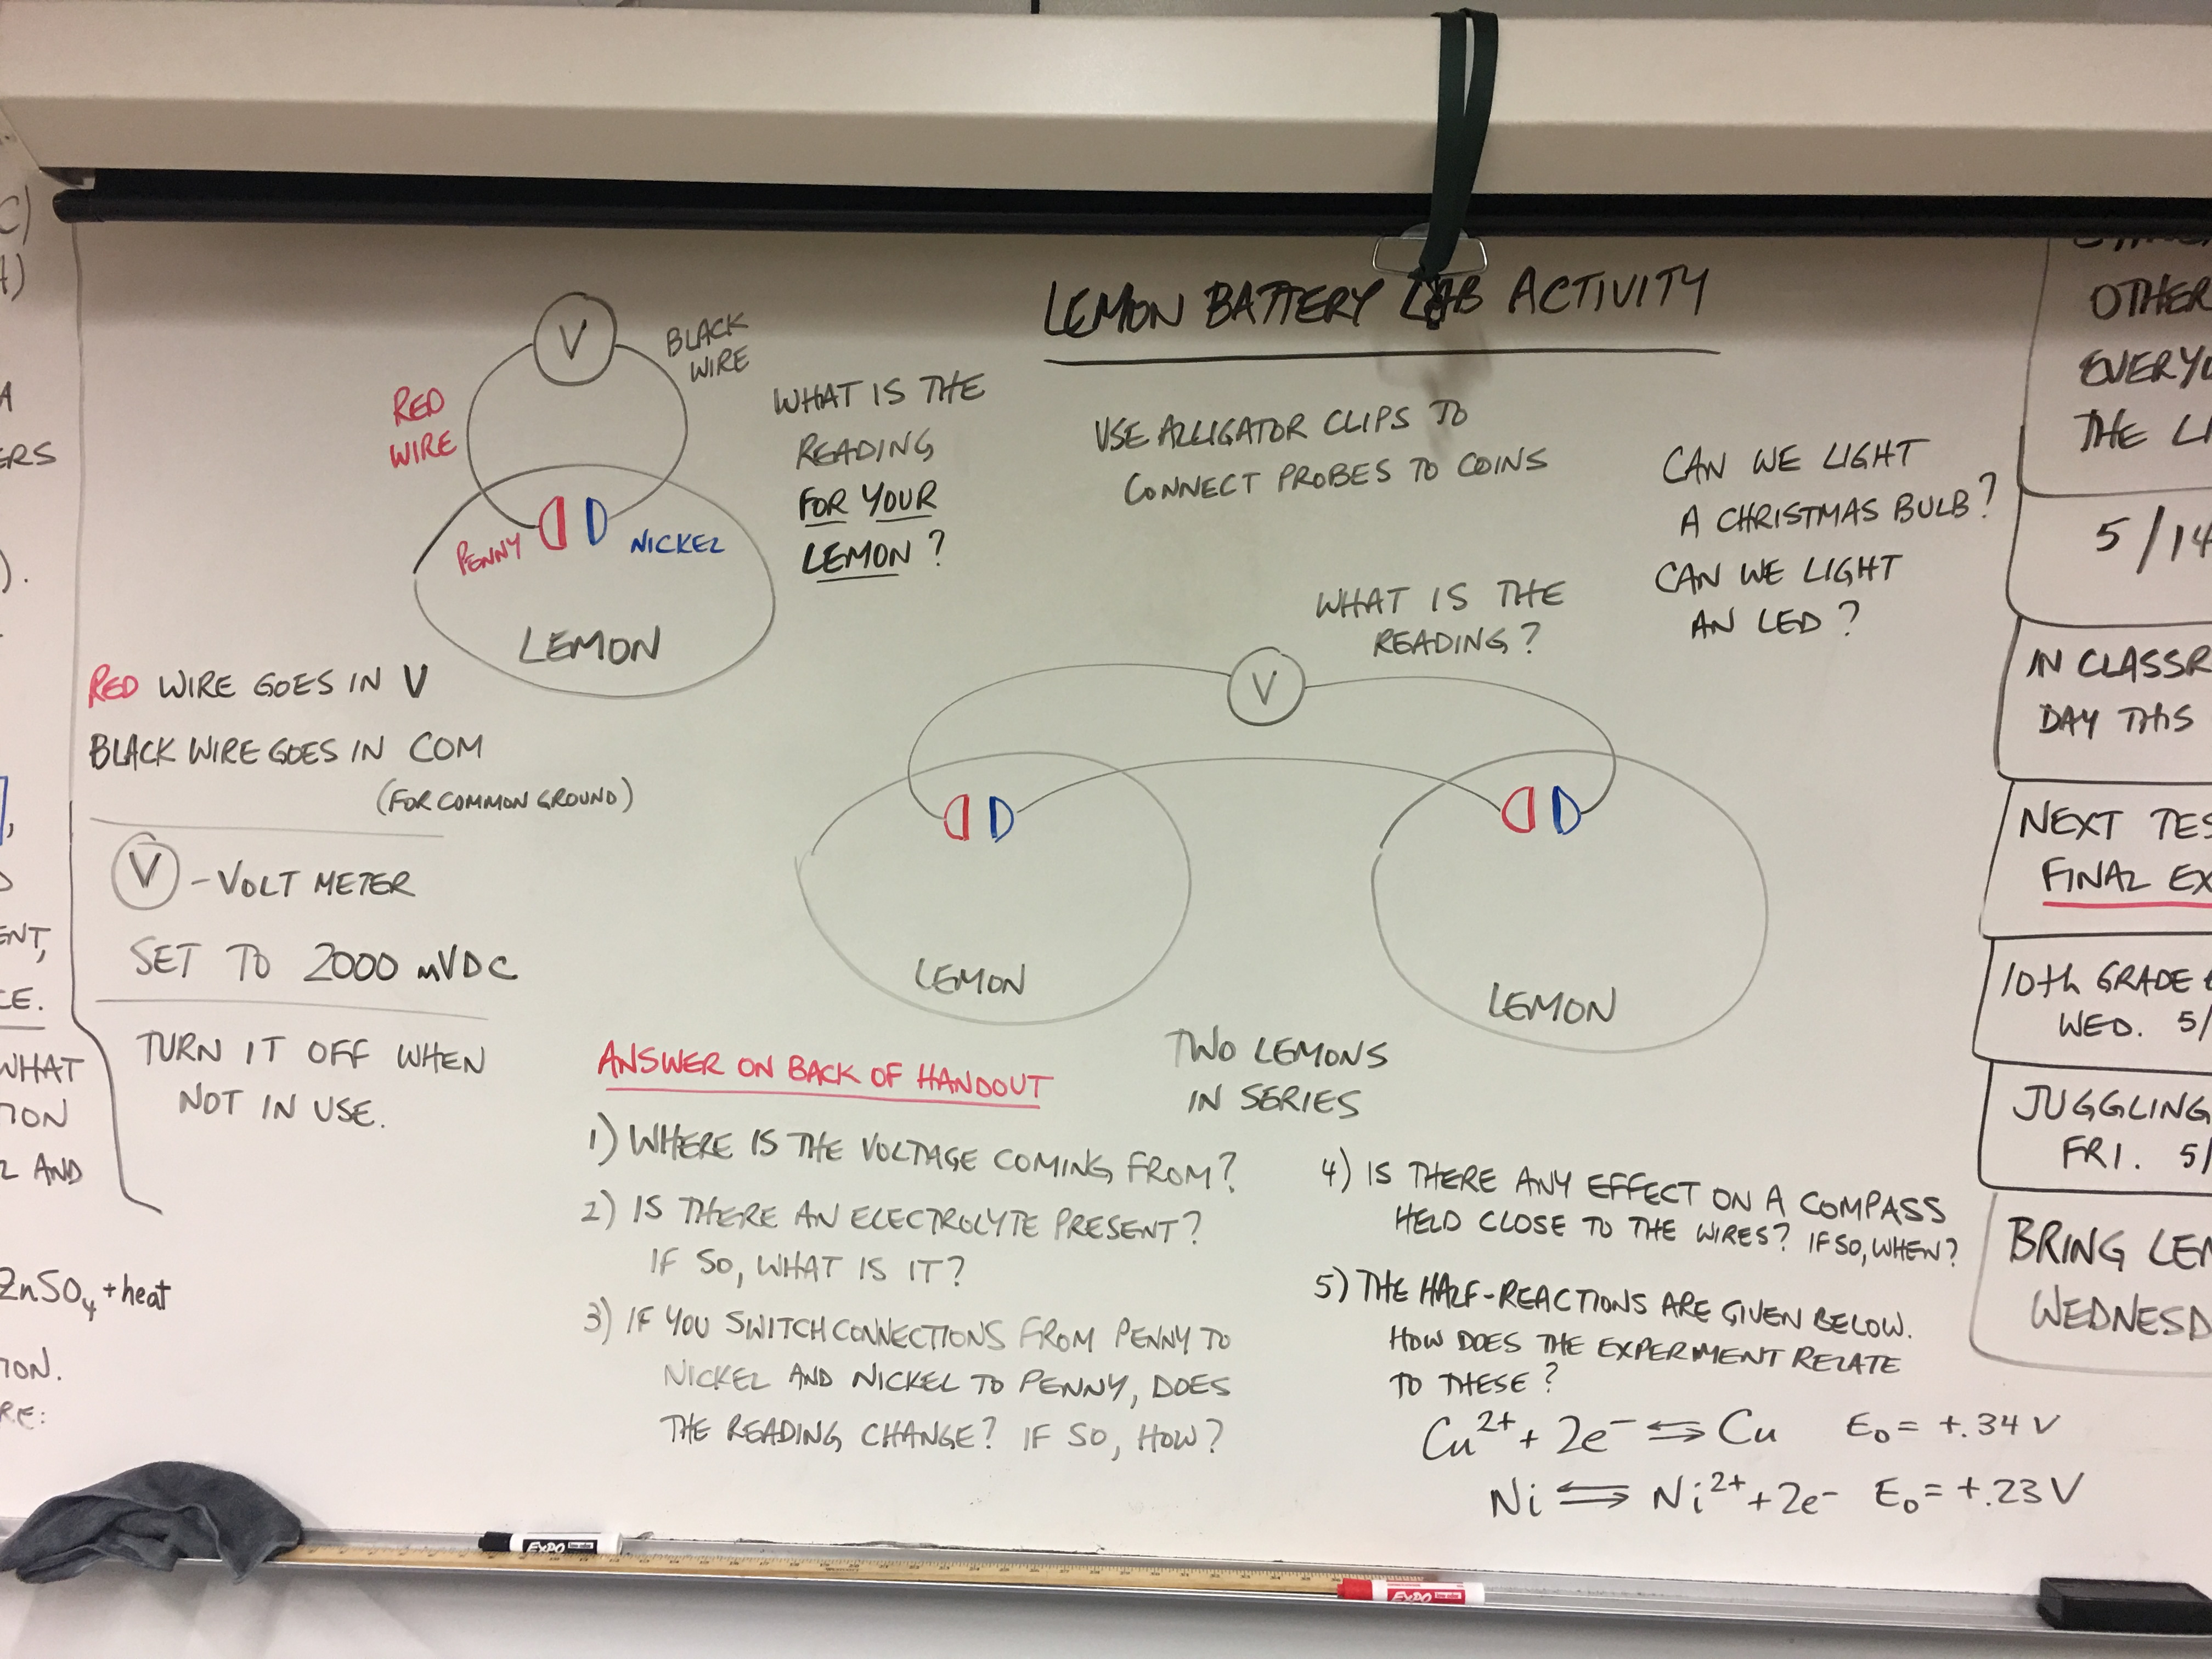 LEMON BATTERY LAB ACTIVITY
V
BLACK
WIRE
RED
WIRE
PENNY
NICKEL
LEMON
WHAT IS THE
READING
FOR YOUR
LEMON?
USE ALLIGATOR CLIPS TO
CONNECT PROBES TO COINS
CAN WE LIGHT
A CHRISTMAS BULB?
CAN WE LIGHT
AN LED?
RED WIRE GOES IN V
BLACK WIRE GOES IN COM
(FOR COMMON GROUND)
V - VOLT METER
SET TO 2000 mVDC
TURN IT OFF WHEN
NOT IN USE.
WHAT IS THE
READING?
V
LEMON
LEMON
TWO LEMONS
IN SERIES
ANSWER ON BACK OF HANDOUT
1) WHERE IS THE VOLTAGE COMING FROM?
2) IS THERE AN ELECTROLYTE PRESENT?
IF SO, WHAT IS IT?
3) IF YOU SWITCH CONNECTIONS FROM PENNY TO
NICKEL AND NICKEL TO PENNY, DOES
THE READING CHANGE? IF SO, HOW?
4) IS THERE ANY EFFECT ON A COMPASS
HELD CLOSE TO THE WIRES? IF SO, WHEN?
5) THE HALF-REACTIONS ARE GIVEN BELOW.
HOW DOES THE EXPERIMENT RELATE
TO THESE?
Cu²⁺ + 2e⁻ ⇌ Cu E₀ = +.34 V
Ni ⇌ Ni²⁺ + 2e⁻ E₀ = +.23 V
WHAT
AND
ZnSO₄ + heat
OTHER
THE
5/14
IN
DAY THIS
NEXT
FINAL
10th GRADE
WED. 5/
JUGGLING
FRI. 5/
BRING
EXPO
EXPO